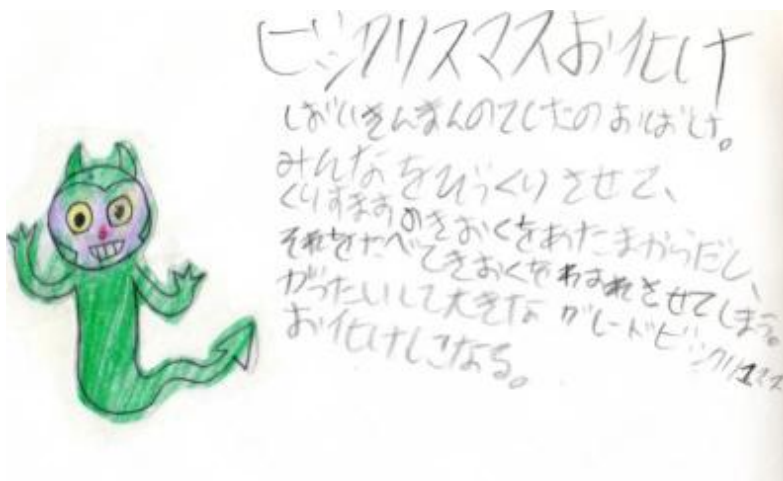 ビックリスマスお化け
しばいきんまんのてしたのおばけ。
みんなをびっくりさせて、
くりすますのきおくをあたまからだし、
それをたべてきおくをわすれさせてしまう。
がったいして大きなグレードビックリスマス
お化けになる。